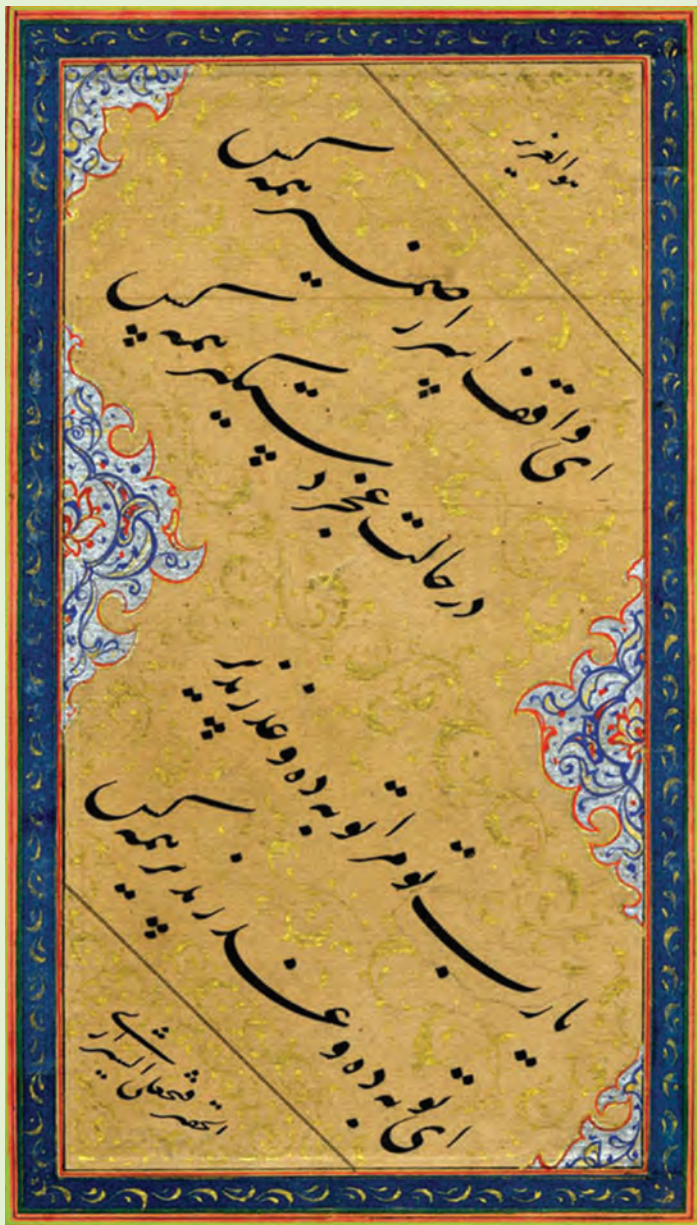 هوالعزیز
ای واقف اسرار ضمیر همه کس
در حالت عجز دستگیر همه کس
یا رب تو مرا توبه ده و عذر پذیر
ای توبه ده و عذر پذیر همه کس
الحقیر فتحعلی الشیرازی